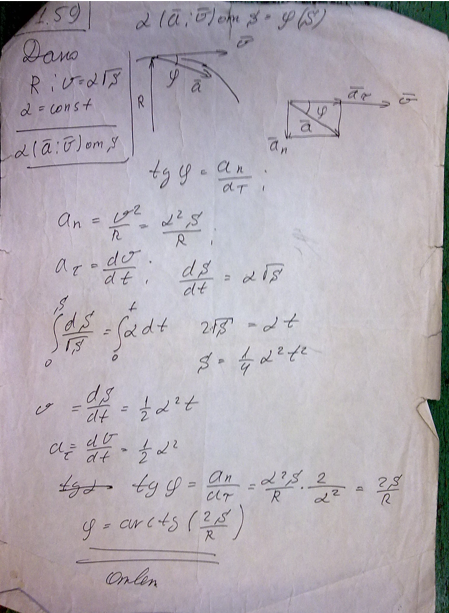 1.59 α(ā; v̄) от S = φ(S)
Дано
R; v = α√S
α = const
α(ā; v̄) от S
v̄
φ
ā
R
āτ
v̄
φ
ā
āₙ
tg φ = aₙ/aτ;
aₙ = v²/R = α²S/R;
aτ = dv/dt; dS/dt = α√S
∫₀ˢ dS/√S = ∫₀ᵗ α dt 2√S = αt
S = 1/4 α²t²
v = dS/dt = 1/2 α²t
aτ = dv/dt = 1/2 α²
tg φ = aₙ/aτ = α²S/R · 2/α² = 2S/R
φ = arctg (2S/R)
Ответ